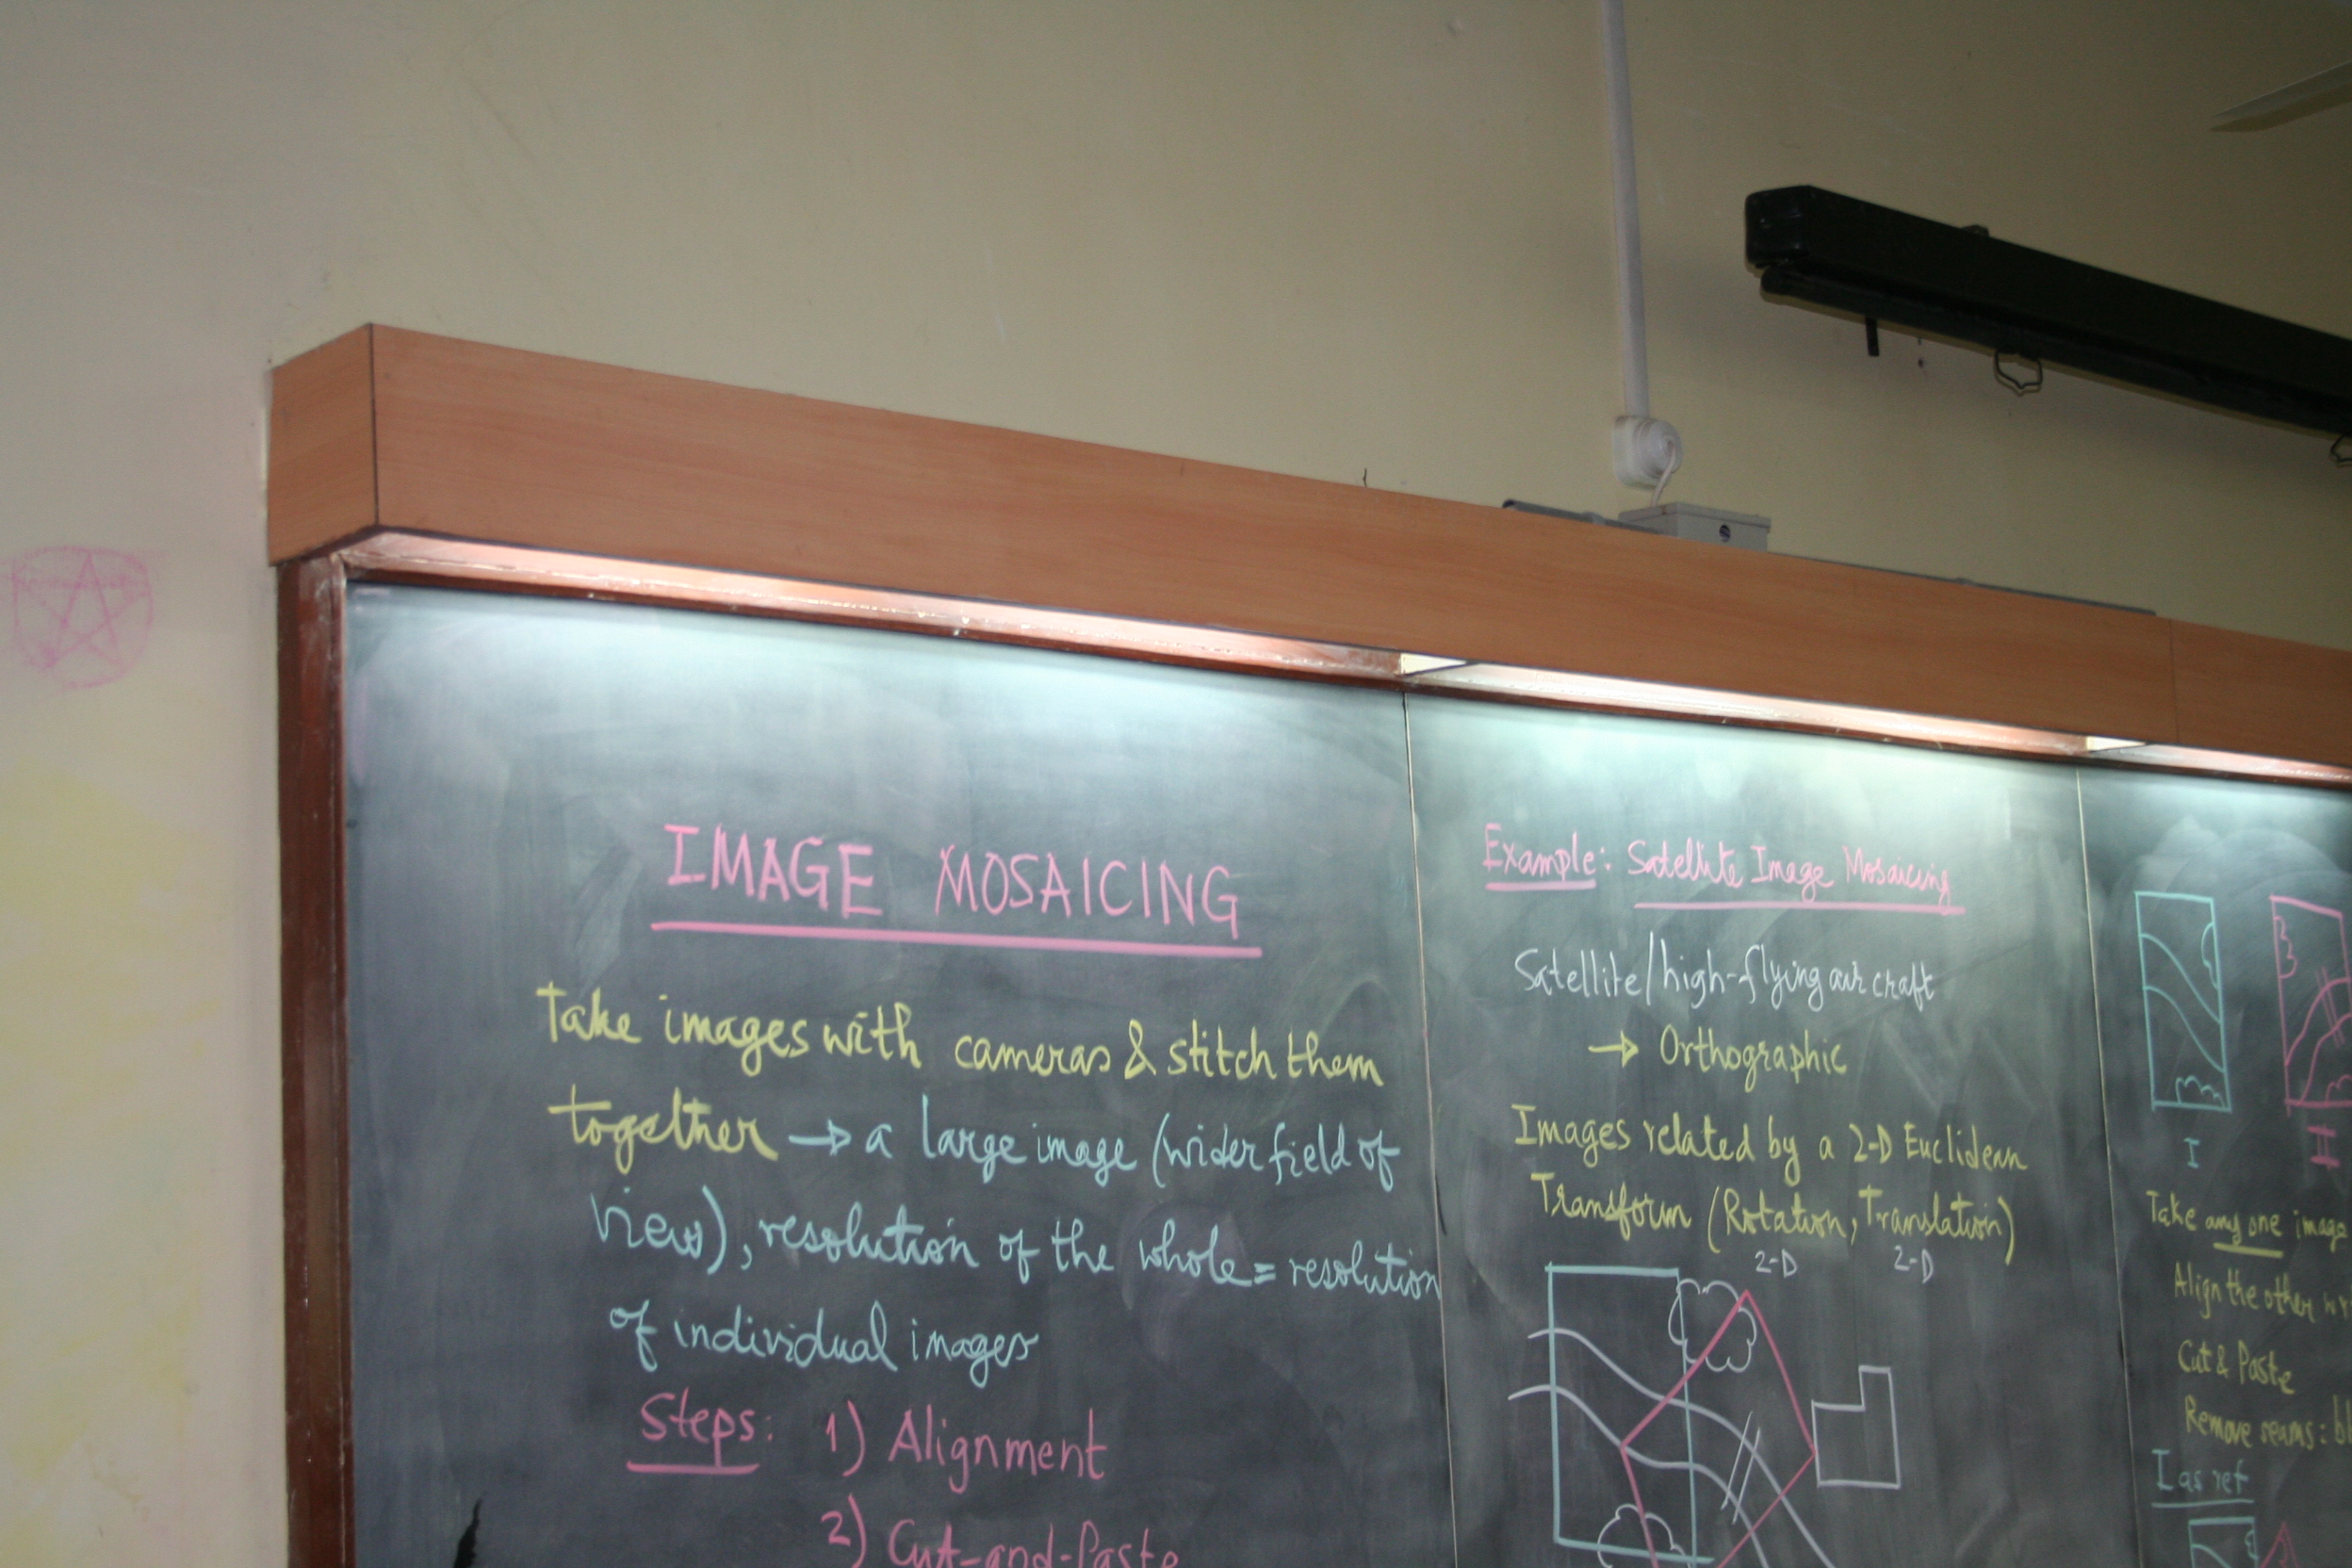 IMAGE MOSAICING
Take images with cameras & stitch them
together → a large image (wider field of
view), resolution of the whole = resolution
of individual images
Steps: 1) Alignment
2) Cut-and-Paste
Example: Satellite Image Mosaicing
Satellite/high-flying air craft
→ Orthographic
Images related by a 2-D Euclidean
Transform (Rotation, Translation)
2-D 2-D
I II
Take any one image
Align the other
Cut & Paste
Remove seams:
I as ref